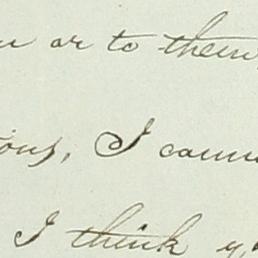 or to them
ous, I cann
I think y